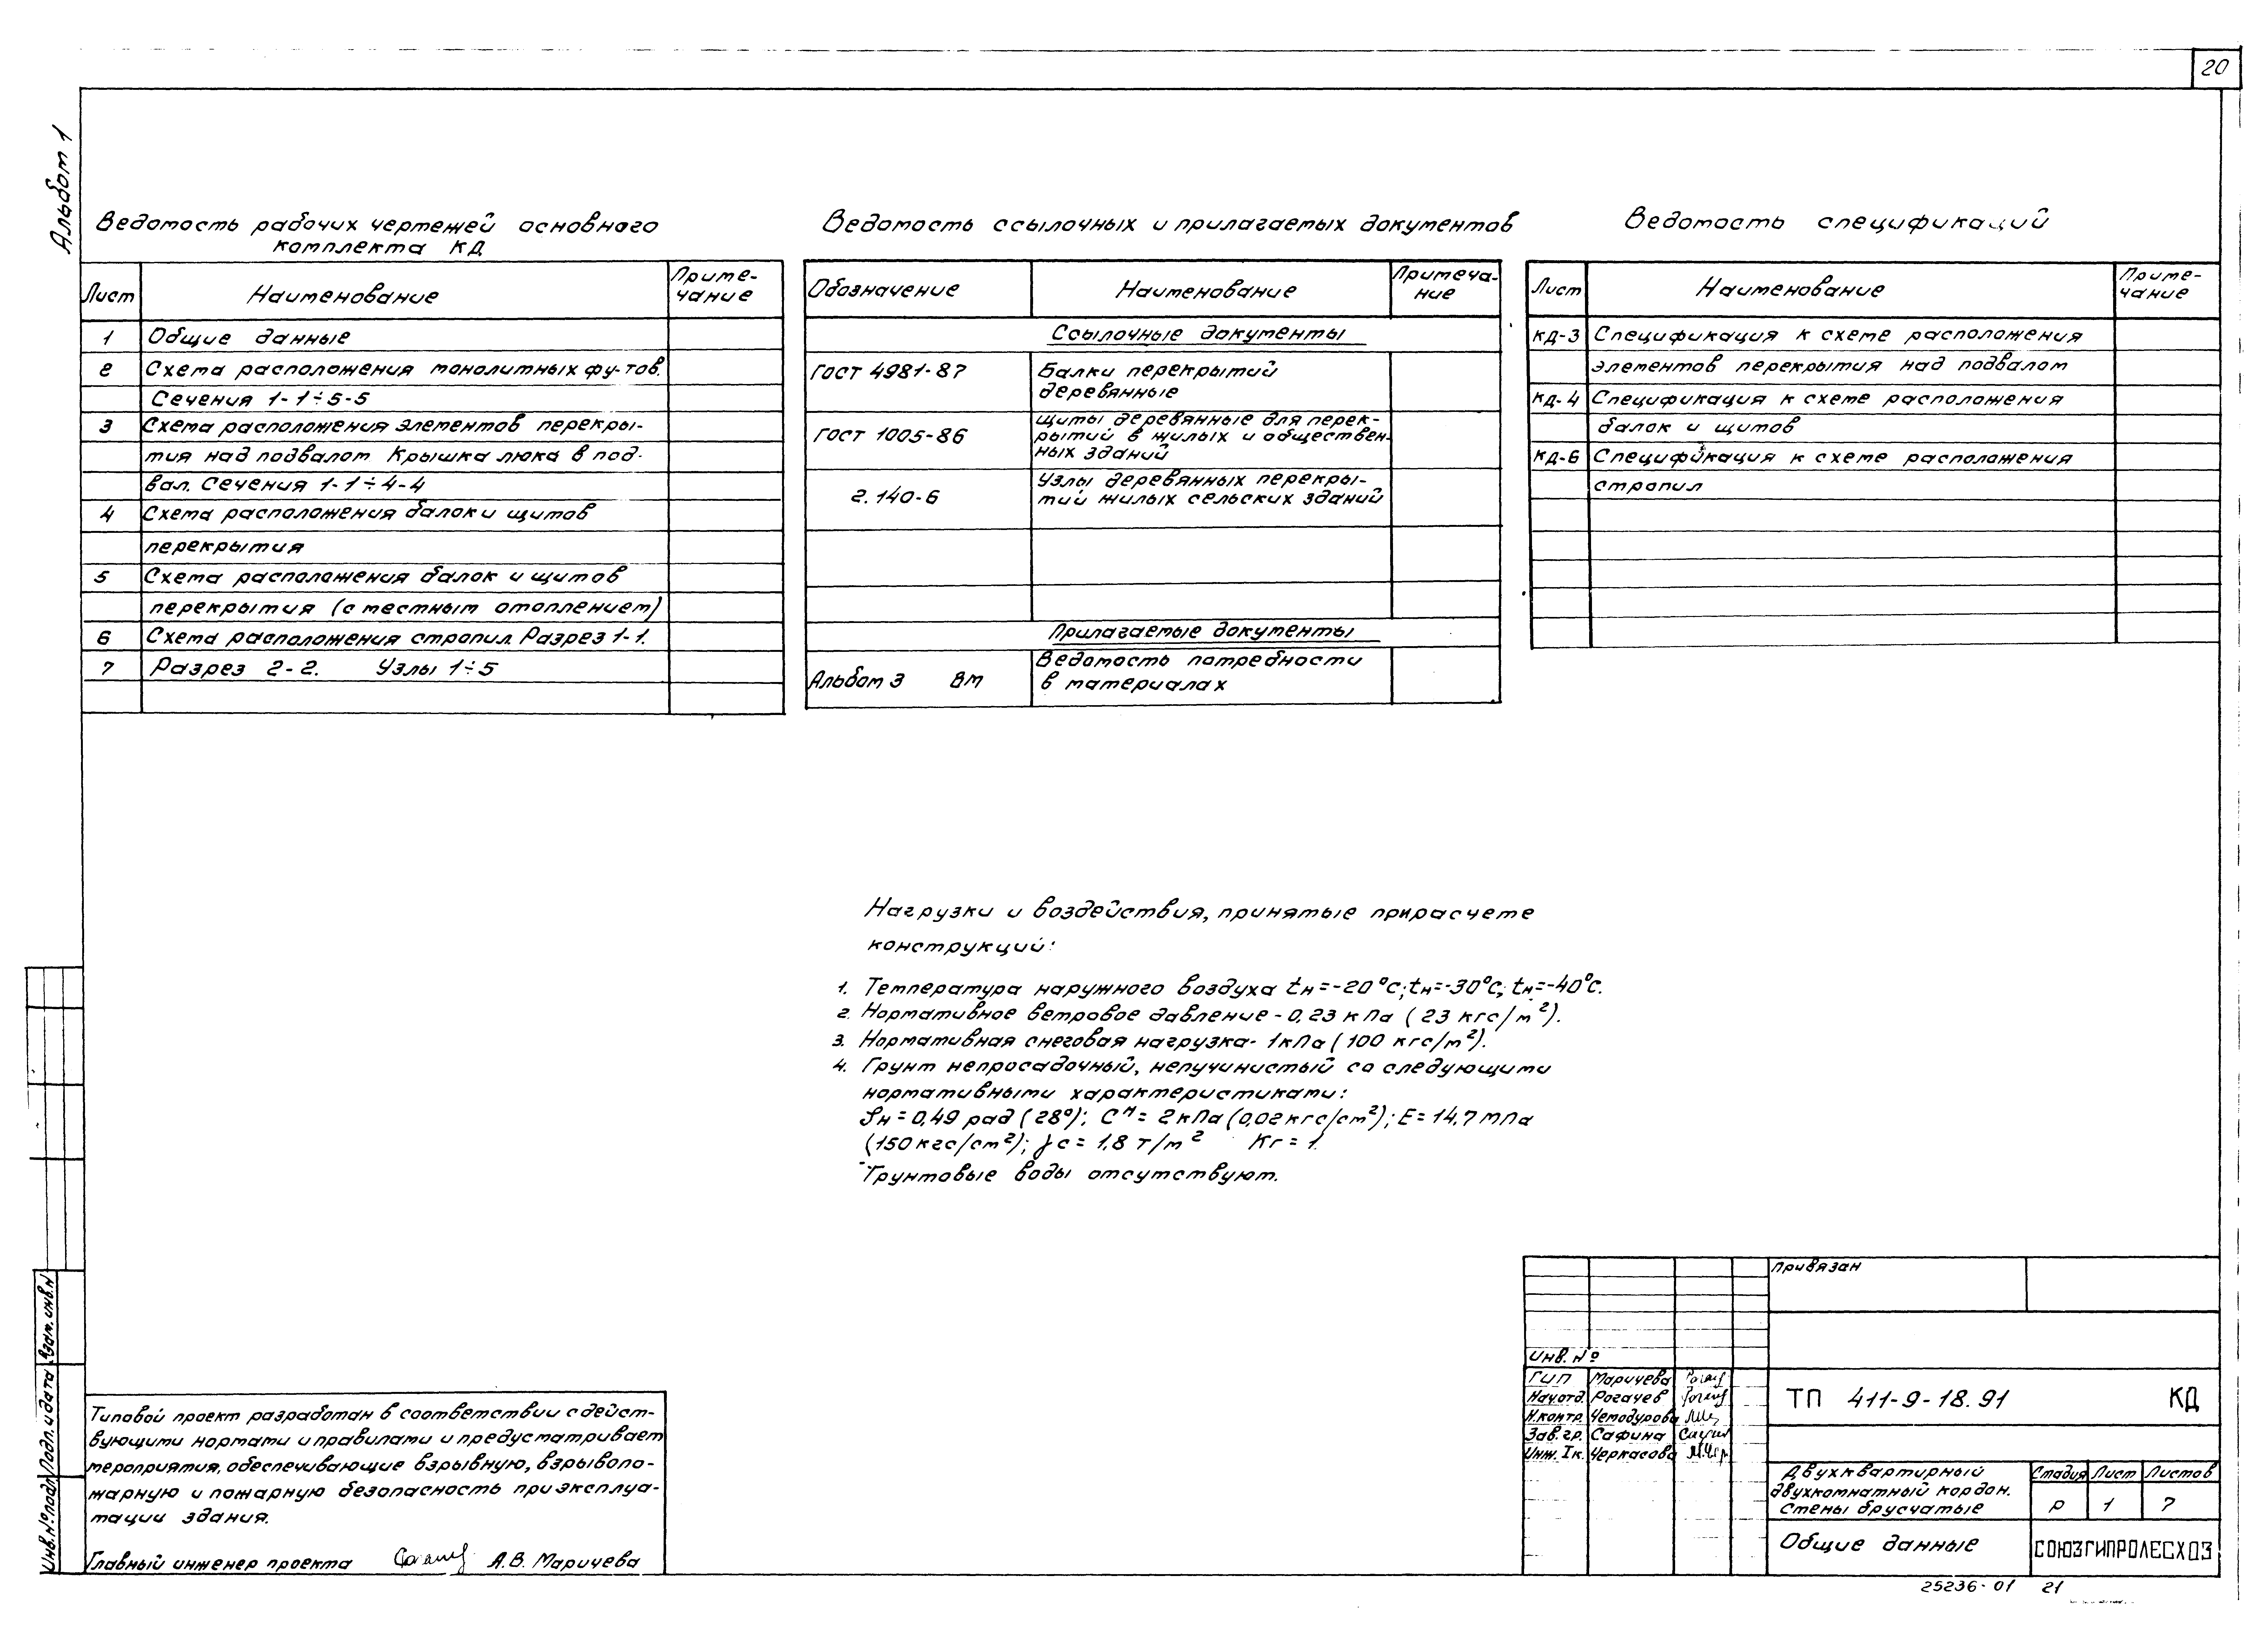 20
Альбом 1
Ведомость рабочих чертежей основного
комплекта КД
Лист Наименование Приме-
чание
1 Общие данные
2 Схема расположения монолитных фу-тов.
Сечения 1-1÷5-5
3 Схема расположения элементов перекры-
тия над подвалом Крышка люка в под-
вал. Сечения 1-1÷4-4
4 Схема расположения балок и щитов
перекрытия
5 Схема расположения балок и щитов
перекрытия (с местным отоплением)
6 Схема расположения стропил. Разрез 1-1.
7 Разрез 2-2. Узлы 1÷5
Ведомость ссылочных и прилагаемых документов
Обозначение Наименование Примеча-
ние
Ссылочные документы
ГОСТ 4981-87 Балки перекрытий
деревянные
ГОСТ 1005-86 Щиты деревянные для перек-
рытий в жилых и обществен-
ных зданий
2.140-6 Узлы деревянных перекры-
тий жилых сельских зданий
Прилагаемые документы
Альбом 3 ВМ Ведомость потребности
в материалах
Ведомость спецификаций
Лист Наименование Приме-
чание
КД-3 Спецификация к схеме расположения
элементов перекрытия над подвалом
КД-4 Спецификация к схеме расположения
балок и щитов
КД-6 Спецификация к схеме расположения
стропил
Нагрузки и воздействия, принятые при расчете
конструкций:
1. Температура наружного воздуха tн=-20°С; tн=-30°С; tн=-40°С.
2. Нормативное ветровое давление - 0,23 кПа (23 кгс/м²).
3. Нормативная снеговая нагрузка - 1кПа (100 кгс/м²).
4. Грунт непросадочный, непучинистый со следующими
нормативными характеристиками:
φн = 0,49 рад (28°); Сн = 2кПа (0,02кгс/см²); Е = 14,7 мПа
(150 кгс/см²); γс = 1,8 т/м² Кг = 1
Грунтовые воды отсутствуют.
Типовой проект разработан в соответствии с дейст-
вующими нормами и правилами и предусматривает
мероприятия, обеспечивающие взрывную, взрывопо-
жарную и пожарную безопасность при эксплуа-
тации здания.
Главный инженер проекта А.В. Маричева
Инв.№подл Подп. и дата Взам. инв.№
Привязан
Инв. №
ГИП Маричева
Нач.отд. Рогачев
Н.контр. Чемодурова
Зав.гр. Сафина
Инж. Iк. Черкасова
ТП 411-9-18.91 КД
Двухквартирный
двухкомнатный кордон.
Стены брусчатые
Стадия Лист Листов
Р 1 7
Общие данные
СОЮЗГИПРОЛЕСХОЗ
25236-01 21